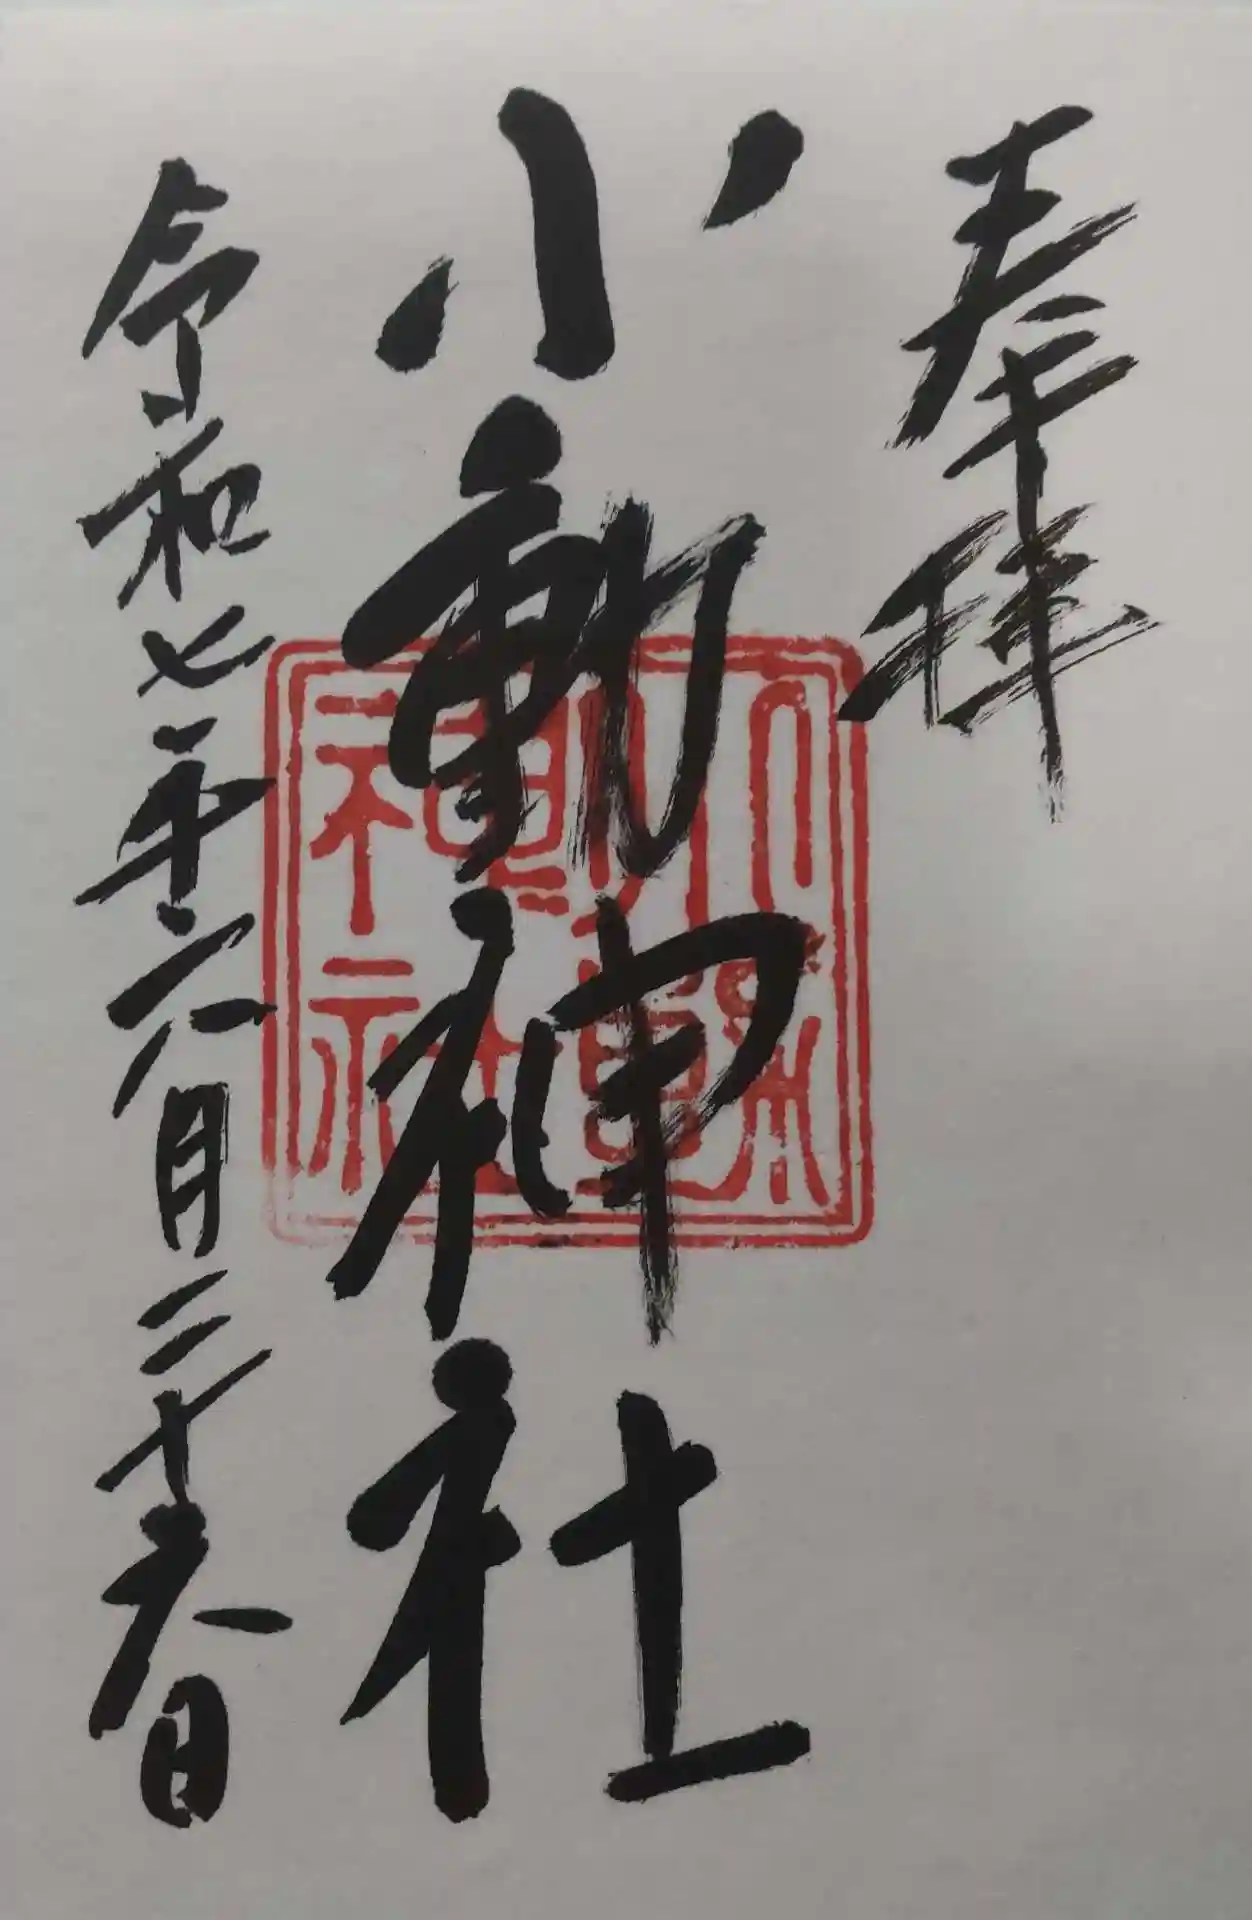 奉拝
小動神社
令和七年六月二十六日